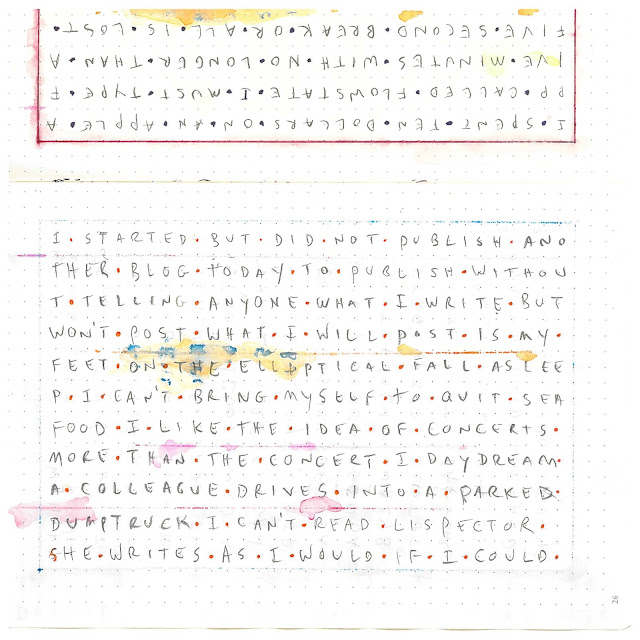 I·SPENT·TEN·DOLLARS·ON·AN·APPLE·A
PP·CALLED·FLOWSTATE·I·MUST·TYPE·F
IVE·MINUTES·WITH·NO·LONGER·THAN·A
FIVE·SECOND·BREAK·OR·ALL·IS·LOST·
I·STARTED·BUT·DID·NOT·PUBLISH·ANO
THER·BLOG·TODAY·TO·PUBLISH·WITHOU
T·TELLING·ANYONE·WHAT·I·WRITE·BUT
WON'T·POST·WHAT·I·WILL·POST·IS·MY·
FEET·ON·THE·ELLIPTICAL·FALL·ASLEE
P·I·CAN'T·BRING·MYSELF·TO·QUIT·SEA
FOOD·I·LIKE·THE·IDEA·OF·CONCERTS·
MORE·THAN·THE·CONCERT·I·DAYDREAM·
A·COLLEAGUE·DRIVES·INTO·A·PARKED·
DUMPTRUCK·I·CAN'T·READ·LISPECTOR·
SHE·WRITES·AS·I·WOULD·IF·I·COULD·
26